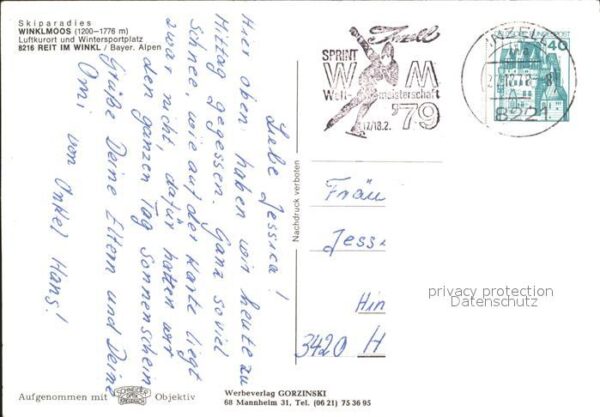 Skiparadies
WINKLMOOS (1200–1776 m)
Luftkurort und Wintersportplatz
8216 REIT IM WINKL / Bayer. Alpen
Liebe Jessica!
Hier oben haben wir heute zu
Mittag gegessen. Ganz soviel
Schnee wie auf der Karte liegt
zwar nicht, dafür hatten wir
den ganzen Tag Sonnenschein
Grüße Deine Eltern und Deine
Omi von Onkel Hans!
Inzell
SPRINT
WM
Welt- meisterschaft
'79
17/18.2.
INZELL
8221
40
Nachdruck verboten
Fräu
Jess
Hin
3420 H
privacy protection
Datenschutz
Aufgenommen mit
SCHNEIDER
KREUZNACH
Objektiv
Werbeverlag GORZINSKI
68 Mannheim 31, Tel. (06 21) 75 36 95